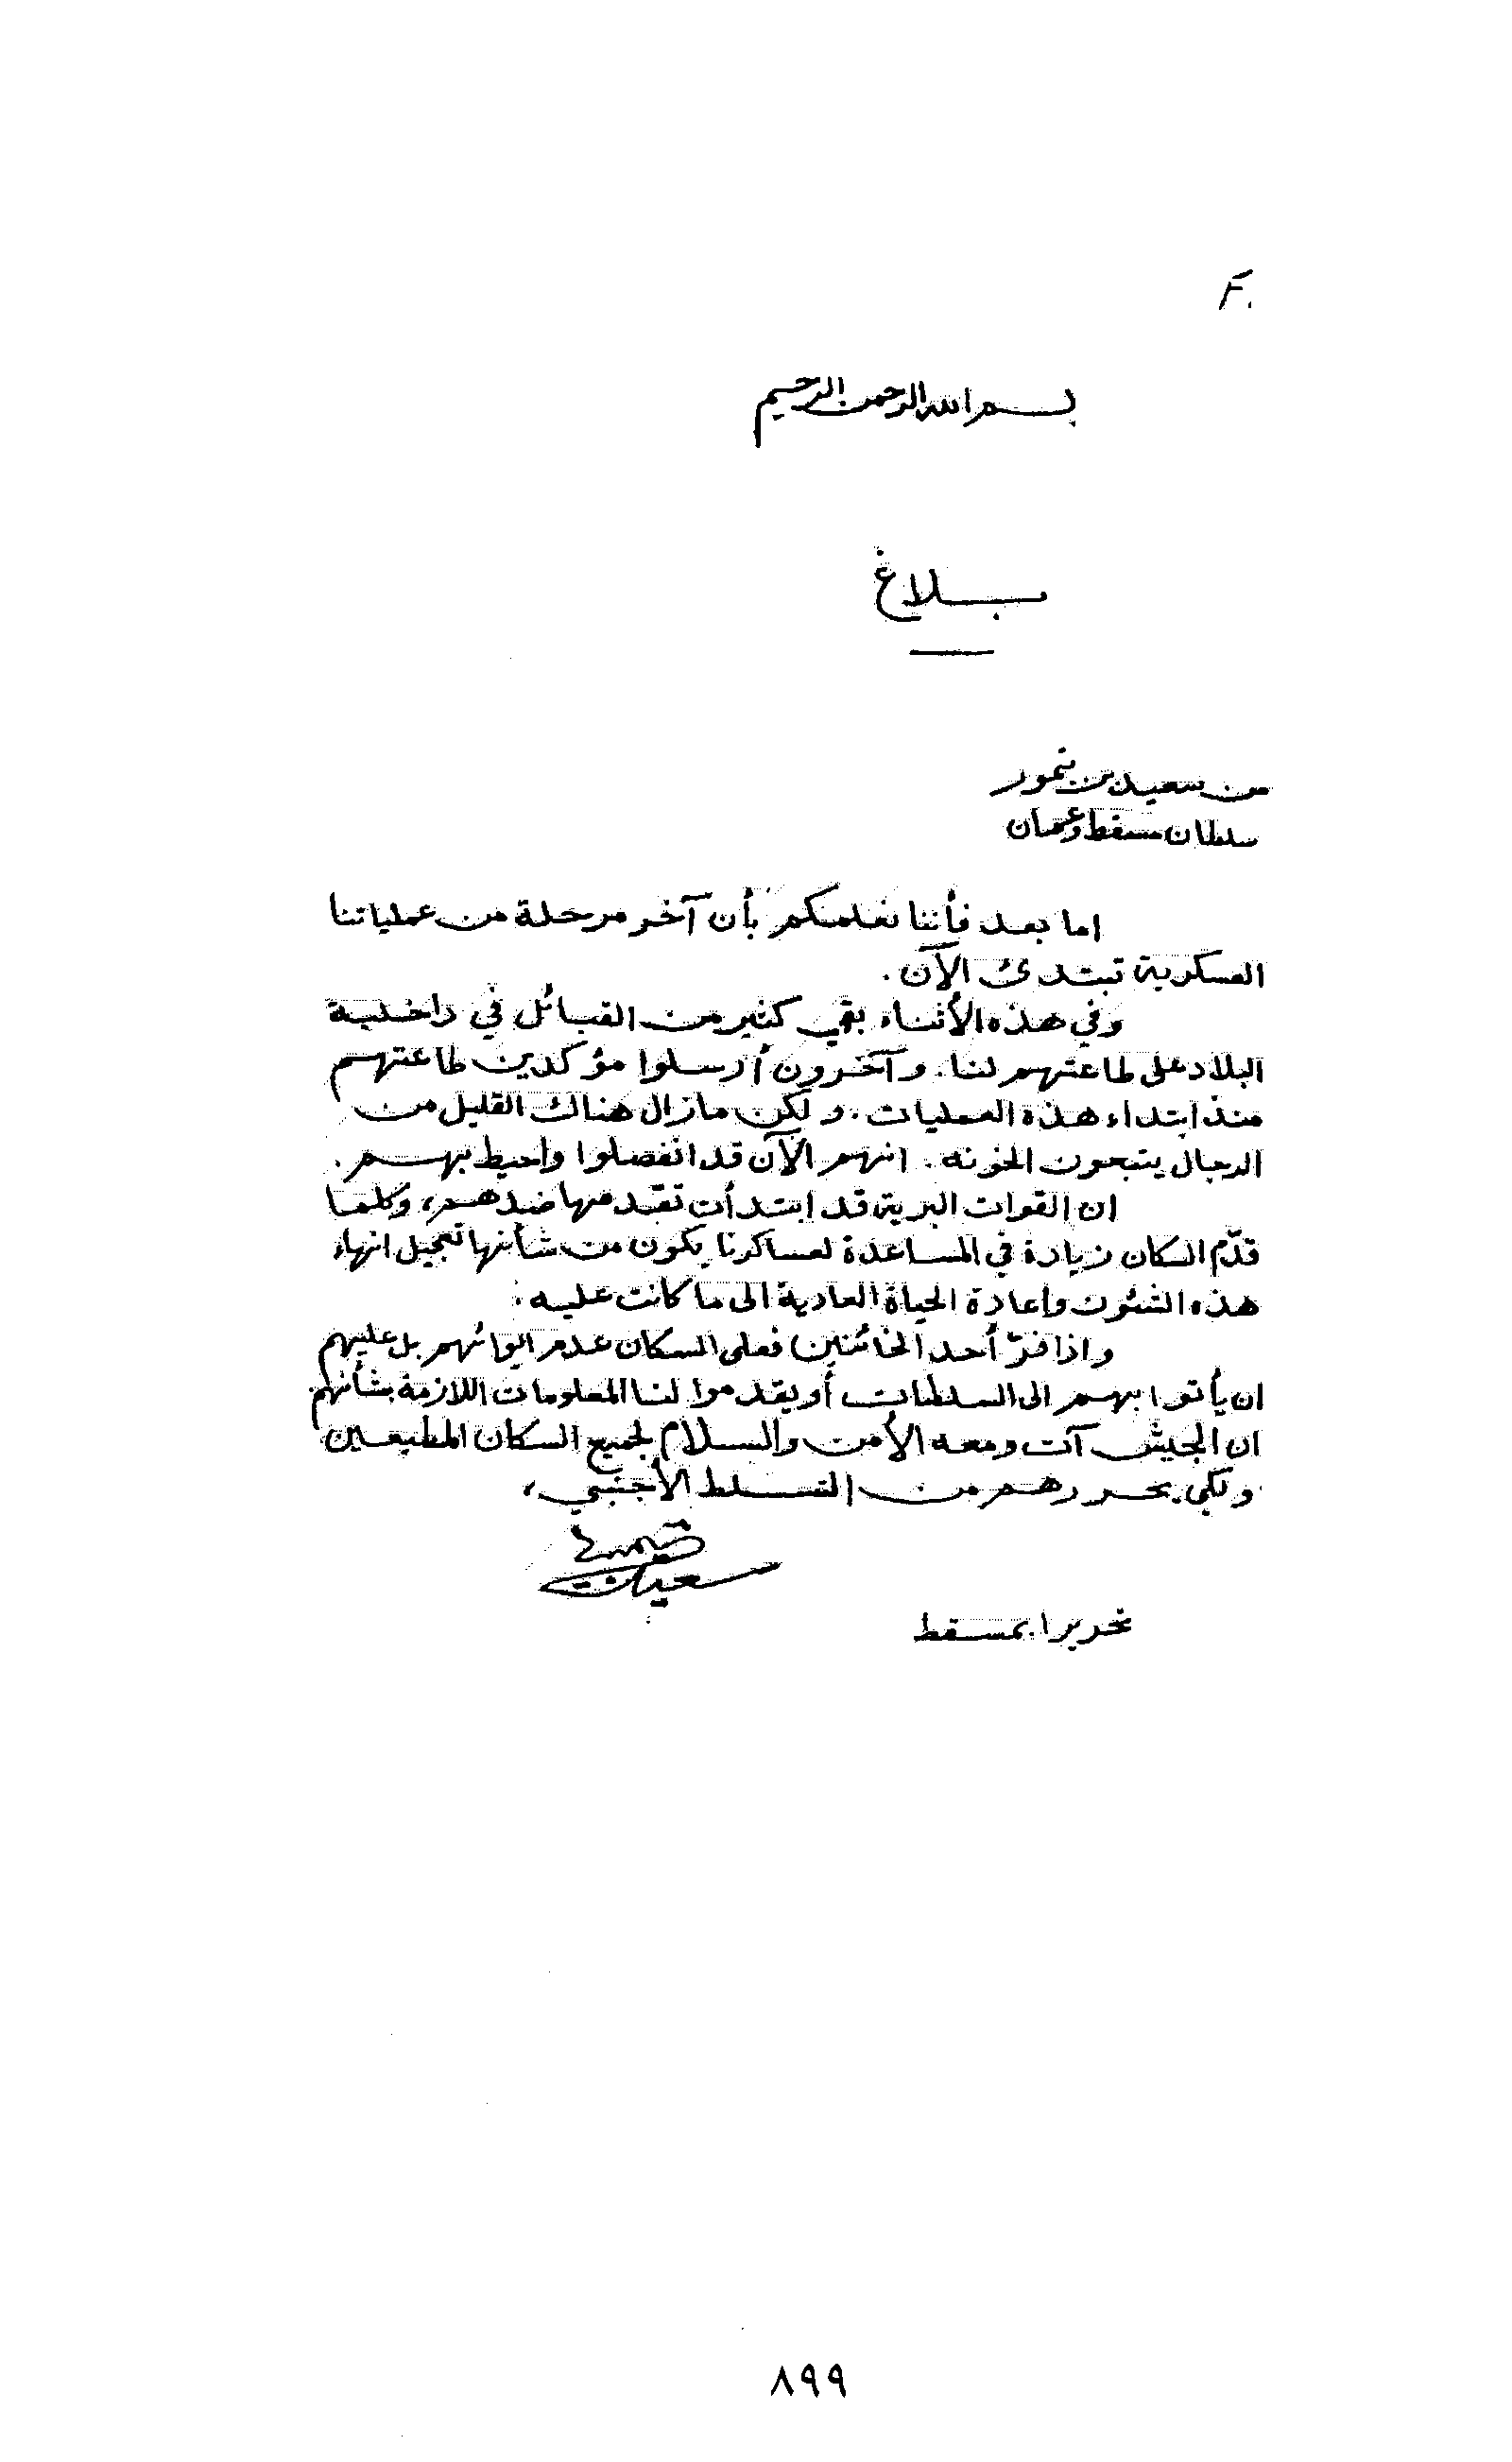 F.
بسم الله الرحمن الرحيم
بلاغ
من سعيد بن تيمور
سلطان مسقط وعمان
اما بعد فأننا نعلمكم بأن آخر مرحلة من عملياتنا
العسكرية تبتدئ الآن .
وفي هذه الأثناء بقي كثير من القبائل في داخلية
البلاد على طاعتهم لنا . وآخرون أرسلوا مؤكدين طاعتهم
منذ ابتداء هذه العمليات . ولكن مازال هناك القليل من
الرجال يتبعون الخونه . انهم الآن قد انفصلوا واحيط بهم .
ان القوات البرية قد ابتدأت تقدمها ضدهم ، وكلما
قدّم السكان زيادة في المساعدة لعساكرنا يكون من شأنها تعجيل انهاء
هذه الشئون وإعادة الحياة العادية الى ما كانت عليه .
واذا فرّ أحد الخائنين فعلى السكان عدم ايوائهم بل عليهم
ان يأتوا بهم الى السلطات أو يقدموا لنا المعلومات اللازمة بشأنهم
ان الجيش آت ومعه الأمن والسلام لجميع السكان المطيعين
ولكي يحررهم من التسلط الأجنبي ،
سعيد بن تيمور
تحريرا بمسقط
٨٩٩